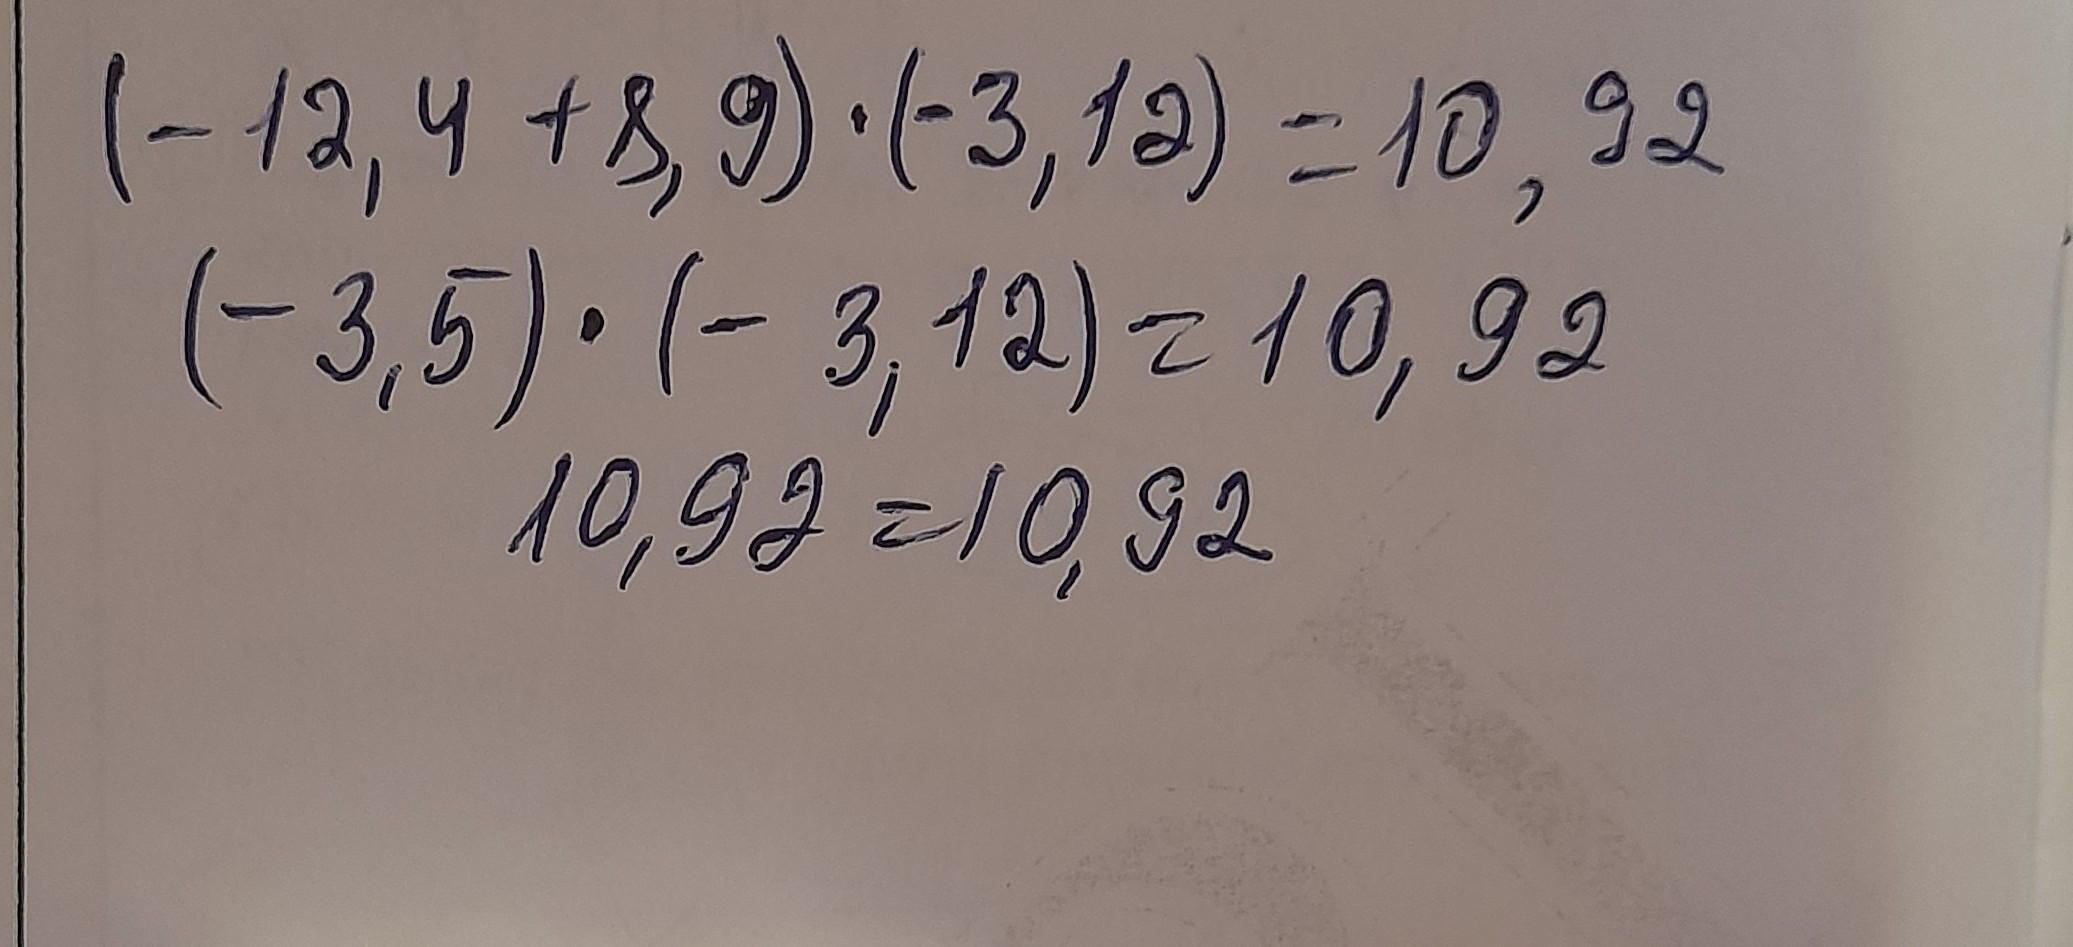 (-12,4+8,9)·(-3,12)=10,92
(-3,5)·(-3,12)=10,92
10,92=10,92